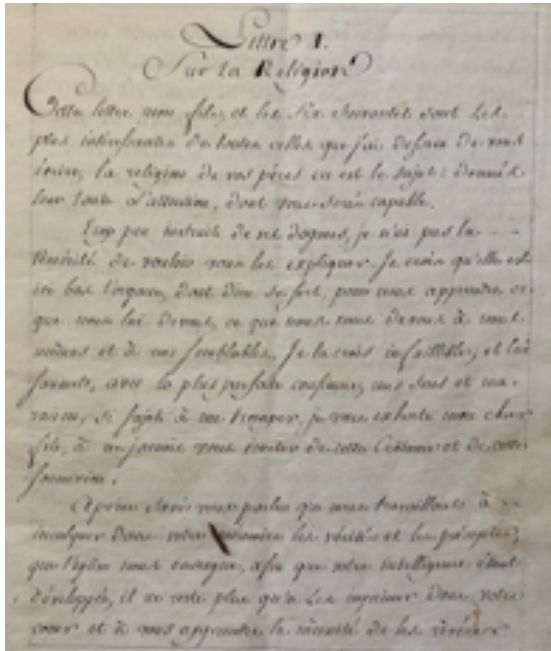 Lettre I.
Sur la Religion
Cette lettre mon fils, et les six suivantes sont les
plus intéressantes de toutes celles que j'ai dessein de vous
écrire, la religion de vos pères en est le sujet: donnés
leur toute l'attention, dont vous serés capable.
Trop peu instruit de ses dogmes, je n'ai pas la
témérité de vouloir vous les expliquer. Je crois qu'elle est
ici bas l'organe, dont dieu se sert, pour nous apprendre ce
que nous lui devons, ce que nous nous devons à nous
mêmes et à nos semblables, Je la crois infaillible, et lui
soumets, avec la plus parfaite confiance, mes sens et ma
raison, si sujets à me tromper. je vous exhorte mon cher
fils, à ne jamais vous écarter de cette Créance et de cette
soumission.
A peine saviés vous parler que nous travaillions à
inculquer dans votre mémoire les vérités et les préceptes,
que l'église nous enseigne, afin que votre intelligence étant
dévelopée, il ne reste plus qu'à les imprimer dans votre
coeur et à vous apprendre la nécessité de les révérer